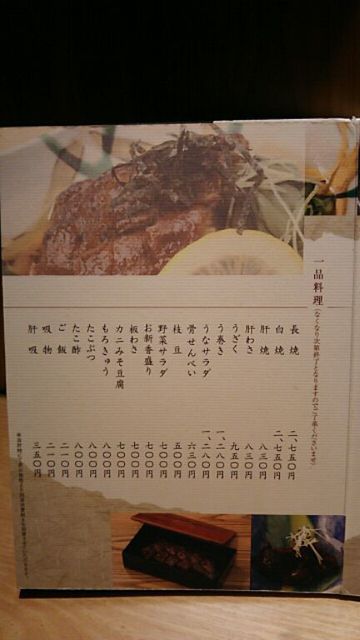 一品料理(なくなり次第終了となりますのでご了承くださいませ)
長焼 二、七五〇円
白焼 二、七五〇円
肝焼 八三〇円
肝わさ 八三〇円
うざく 九五〇円
う巻き 一、二八〇円
うなサラダ 一、二八〇円
骨せんべい 六三〇円
枝豆 五〇〇円
野菜サラダ 七〇〇円
お新香盛り 七〇〇円
板わさ 七〇〇円
カニみそ豆腐 七〇〇円
もろきゅう 八〇〇円
たこぶつ 八〇〇円
たこ酢 八〇〇円
ご飯 二一〇円
吸物 二一〇円
肝吸 三五〇円